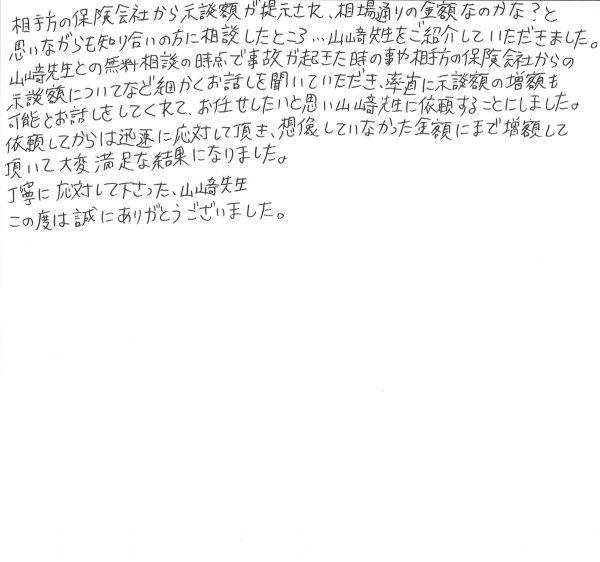 相手方の保険会社から示談額が提示され、相場通りの金額なのかな？と
思いながらも知り合いの方に相談したところ…山﨑先生をご紹介していただきました。
山﨑先生との無料相談の時点で事故が起きた時の事や相手方の保険会社からの
示談額についてなど細かくお話しを聞いていただき、率直に示談額の増額も
可能とお話しをしてくれて、お任せしたいと思い山﨑先生に依頼することにしました。
依頼してからは迅速に応対して頂き、想像していなかった金額にまで増額して
頂いて大変満足な結果になりました。
丁寧に応対して下さった、山﨑先生
この度は誠にありがとうございました。